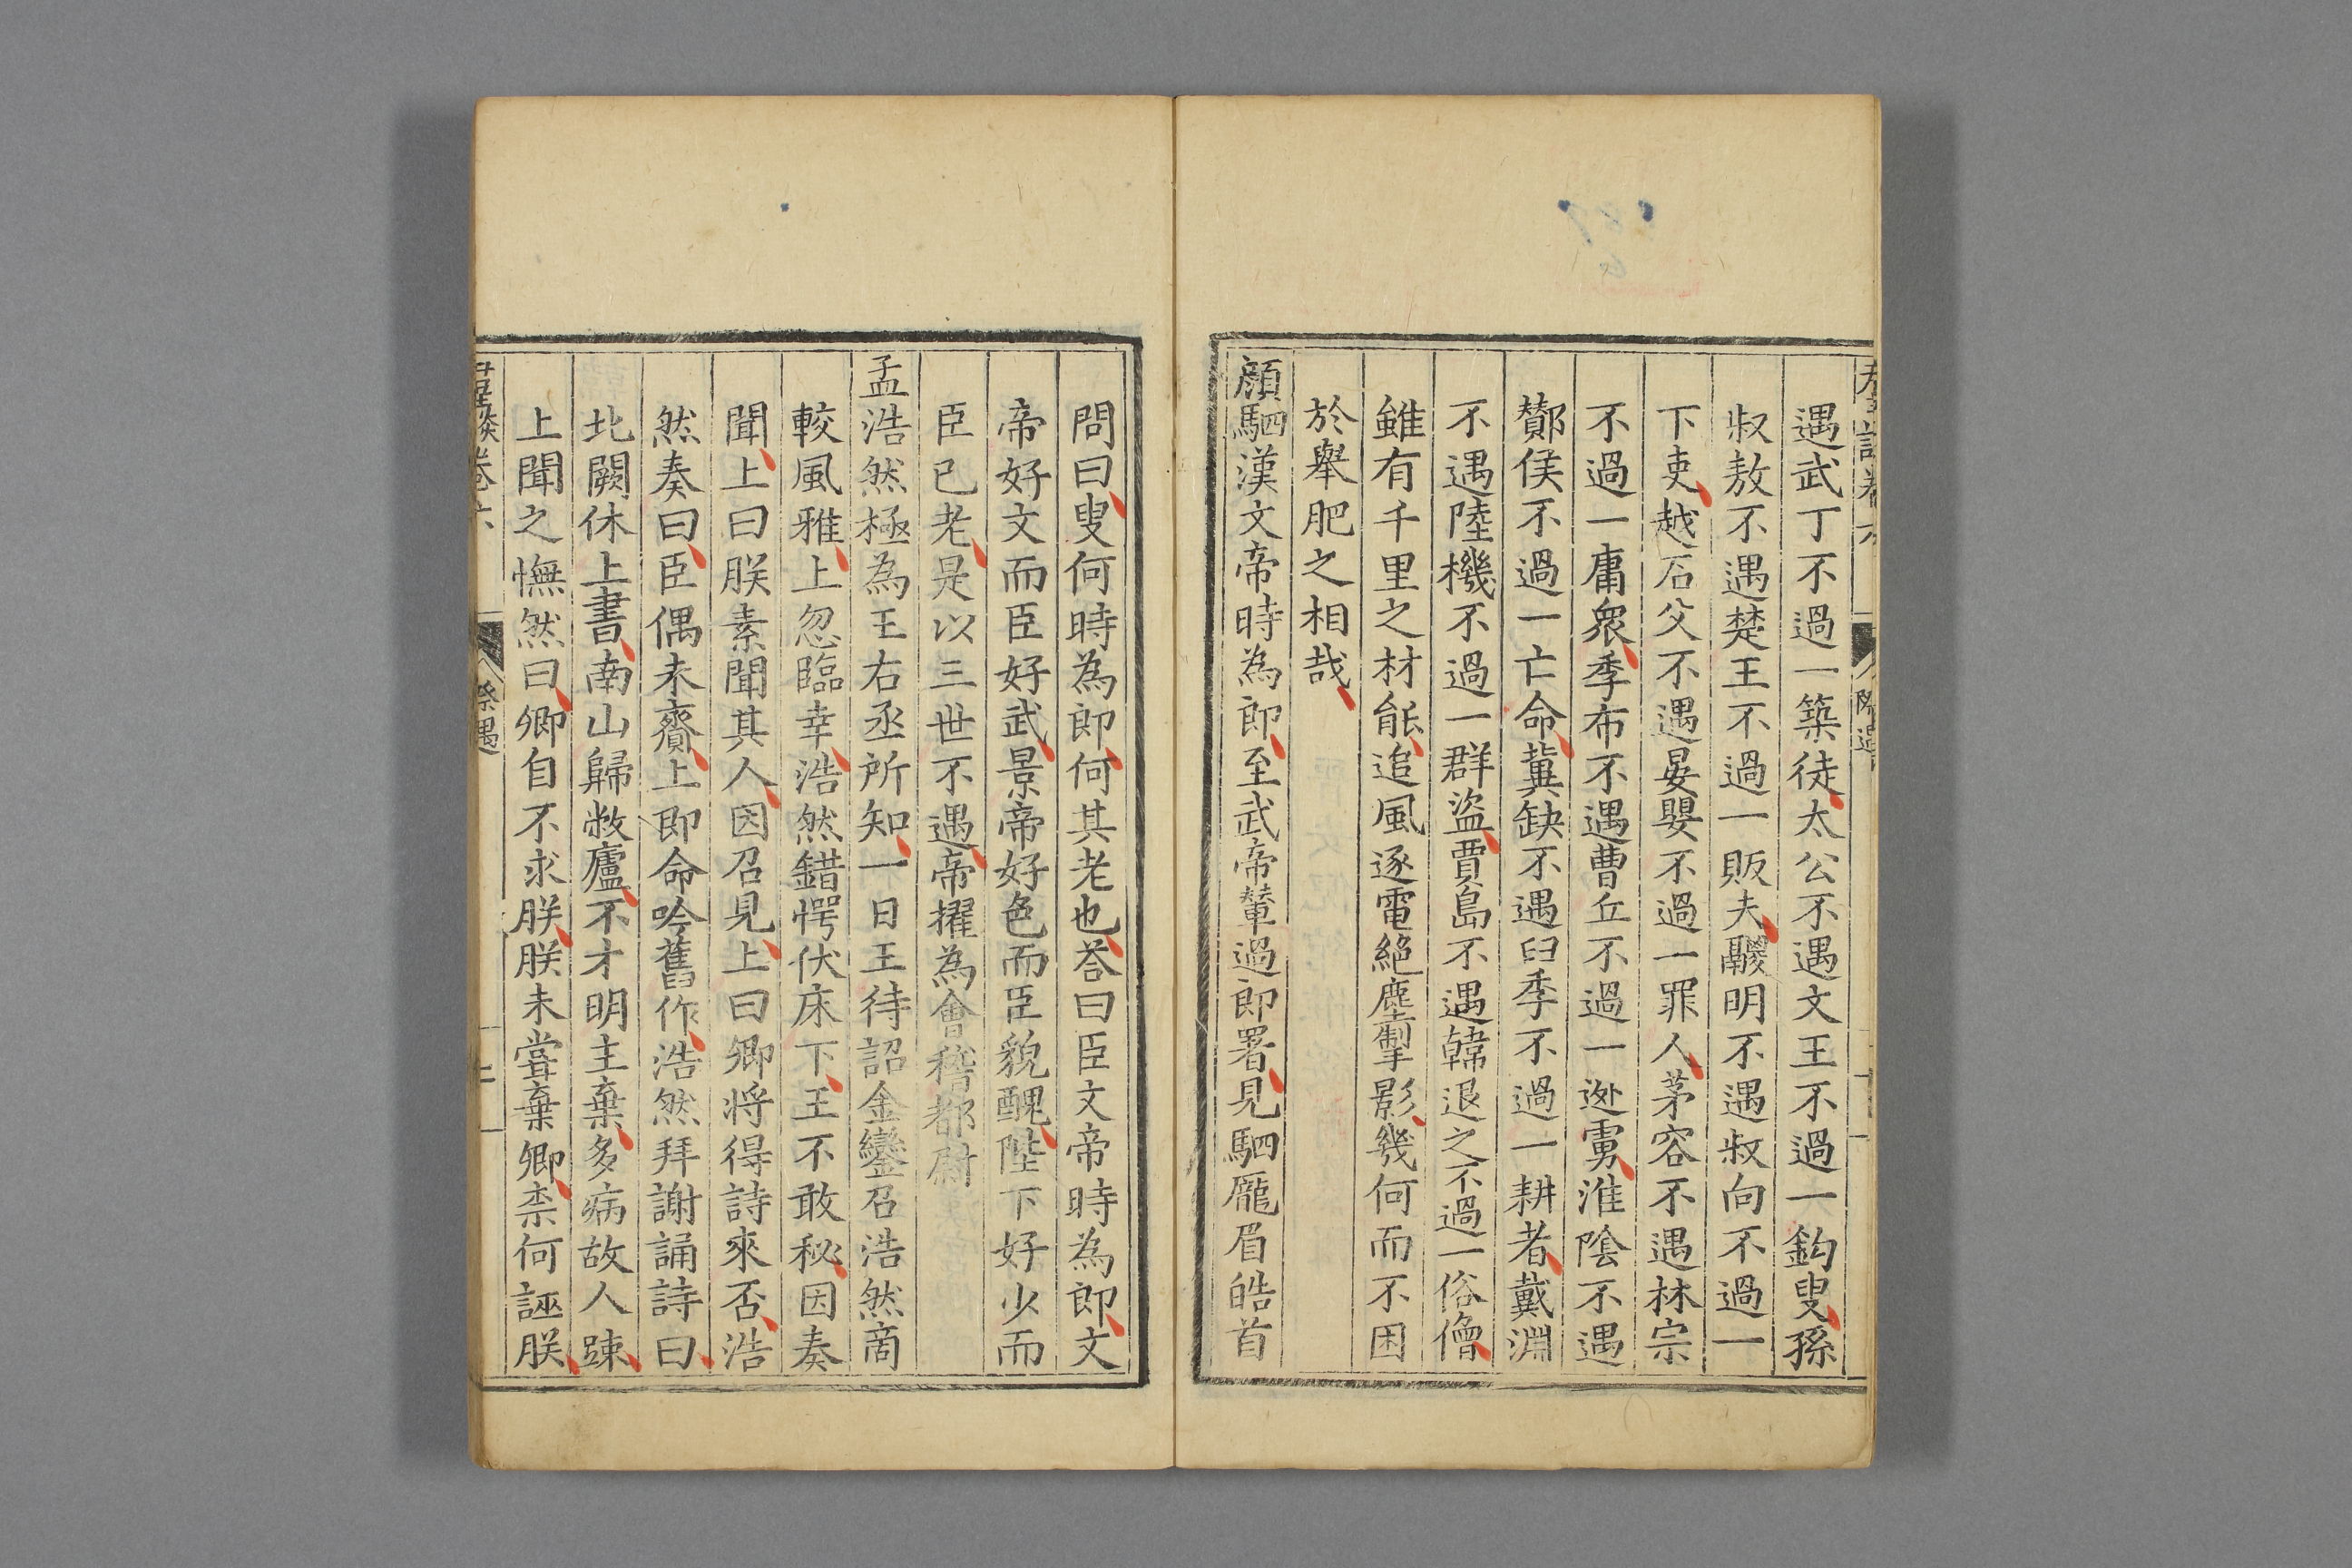 遇武丁不過一築徒太公不遇文王不過一釣叟孫
叔敖不遇楚王不過一販夫鬷明不遇叔向不過一
下吏越石父不遇晏嬰不過一罪人茅容不遇林宗
不過一庸衆季布不遇曹丘不過一逊虜淮陰不遇
酇侯不過一亡命冀缺不遇臼季不過一耕者戴淵
不遇陸機不過一群盜賈島不遇韓退之不過一俗僧
雖有千里之材能追風逐電絕塵掣影幾何而不困
於舉肥之相哉
顔駟漢文帝時為郎至武帝輦過郎署見駟龐眉皓首
問曰叟何時為郎何其老也荅曰臣文帝時為郎文
帝好文而臣好武景帝好色而臣貌醜陛下好少而
臣已老是以三世不遇帝擢為會稽都尉
孟浩然極為王右丞所知一日王待詔金鑾召浩然商
較風雅上忽臨幸浩然錯愕伏床下王不敢秘因奏
聞上曰朕素聞其人因召見上曰卿將得詩來否浩
然奏曰臣偶未齎上即命吟舊作浩然拜謝誦詩曰
北闕休上書南山歸敝廬不才明主棄多病故人踈
上聞之憮然曰卿自不求朕朕未甞棄卿柰何誣朕
卷六
際遇